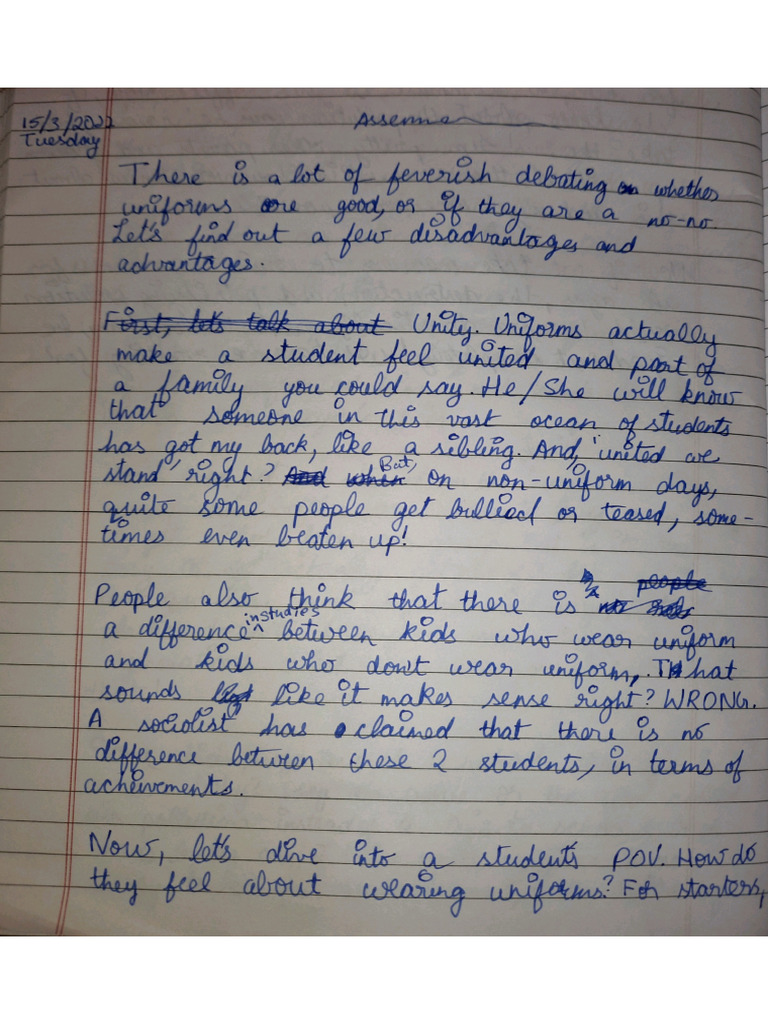 15/3/2022
Tuesday
There is a lot of feverish debating on whether
uniforms are good, or if they are a no-no.
Let's find out a few disadvantages and
advantages.
First, let's talk about Unity. Uniforms actually
make a student feel united and part of
a family you could say. He/She will know
that someone in this vast ocean of students
has got my back, like a sibling. And, 'united we
stand' right? And when But, on non-uniform days,
quite some people get bullied or teased, some-
times even beaten up!
People also think that there is people
a difference in studies between kids who wear uniform
and kids who don't wear uniform,. That
sounds like it makes sense right? WRONG.
A sociolist has claimed that there is no
difference between these 2 students, in terms of
acheivements.
Now, let's dive into a student's POV. How do
they feel about wearing uniforms? For starters,